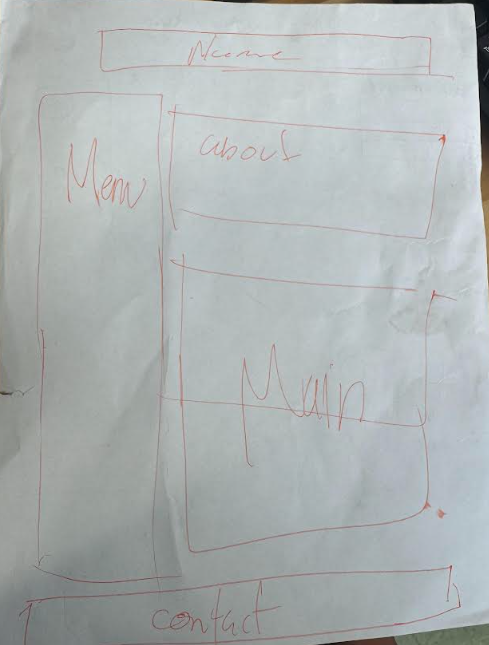 Name
Menu
about
Main
contact